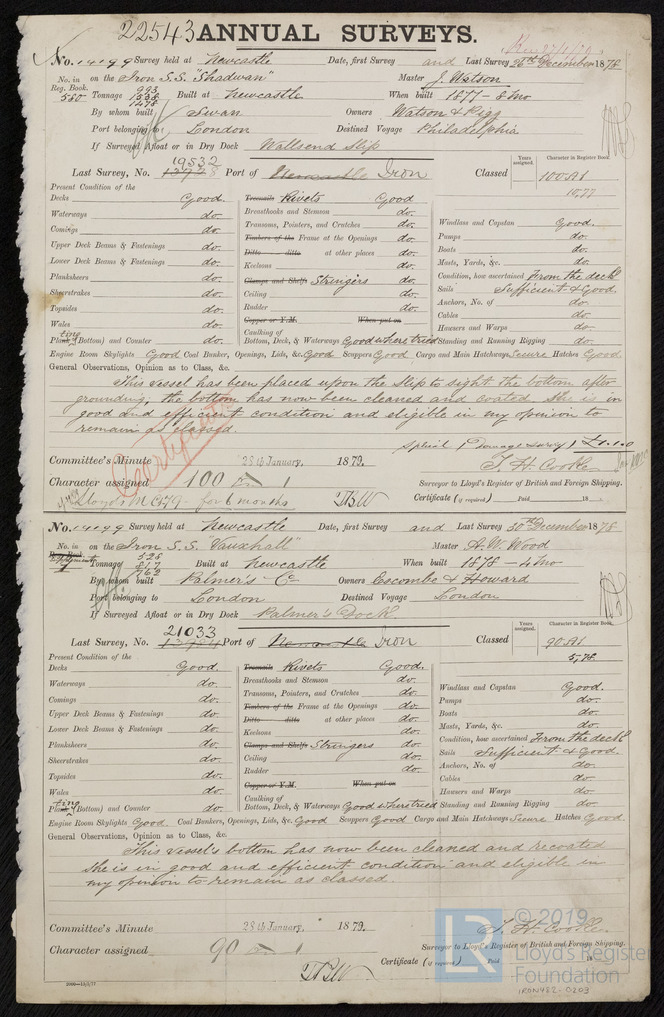 22543 ANNUAL SURVEYS.
No. 14499 Survey held at Newcastle Date, first Survey and Last Survey 26th December 1878
No. in Reg. Book. 560 on the Iron S.S. "Shadwan" Master J. Watson
Tonnage 993 1538 1478 Built at Newcastle When built 1877 - 8mo
By whom built Swan Owners Watson &
Port belonging to London Destined Voyage Philadelphia
If Surveyed Afloat or in Dry Dock Wallsend Slip
Last Survey, No. 19532 Port of Newcastle Iron Classed Years assigned. Character in Register Book. 100A1 10,77
Present Condition of the
Decks Good. Treenails Rivets Good
Waterways do. Breasthooks and Stemson do. Windlass and Capstan Good.
Comings do. Transoms, Pointers, and Crutches do. Pumps do.
Upper Deck Beams & Fastenings do. Timbers of the Frame at the Openings do. Boats do.
Lower Deck Beams & Fastenings do. Ditto ditto at other places do. Masts, Yards, &c. do.
Planksheers do. Keelsons do. Condition, how ascertained From the deck
Sheerstrakes do. Clamps and Shelfs Stringers do. Sails Sufficient & Good
Topsides do. Ceiling do. Anchors, No. of do.
Wales do. Rudder do. Cables do.
Plating (Bottom) and Counter do. Copper or Y.M. When put on Hawsers and Warps do.
Caulking of Bottom, Deck, & Waterways Good where tried Standing and Running Rigging do.
Engine Room Skylights Good Coal Bunker, Openings, Lids, &c. Good Scuppers Good Cargo and Main Hatchways Secure Hatches Good
General Observations, Opinion as to Class, &c.
This vessel has been placed upon the slip to sight the bottom after
grounding, the bottom has now been cleaned and coated. She is in
good and efficient condition and eligible in my opinion to
remain as classed.
Certificate
Special (Damage survey) £1.1.0
Committee's Minute 28th January, 1879. T. H. Cooke
Character assigned 100 A 1 Surveyor to Lloyd's Register of British and Foreign Shipping.
Lloyds MC for 6 months Certificate (if required) Paid 18
No. 14499 Survey held at Newcastle Date, first Survey and Last Survey 30th December 1878
No. in on the Iron S.S. "Vauxhall" Master A. W. Wood
Tonnage 525 817 762 Built at Newcastle When built 1878 - 4mo
By whom built Palmer's Co Owners Escombe & Howard
Port belonging to London Destined Voyage London
If Surveyed Afloat or in Dry Dock Palmer's Dock.
Last Survey, No. 21033 Port of Newcastle Iron Classed Years assigned. Character in Register Book. 90A1 5,78
Present Condition of the
Decks Good. Treenails Rivets Good.
Waterways do. Breasthooks and Stemson do. Windlass and Capstan Good.
Comings do. Transoms, Pointers, and Crutches do. Pumps do.
Upper Deck Beams & Fastenings do. Timbers of the Frame at the Openings do. Boats do.
Lower Deck Beams & Fastenings do. Ditto ditto at other places do. Masts, Yards, &c. do.
Planksheers do. Keelsons do. Condition, how ascertained From the deck
Sheerstrakes do. Clamps and Shelfs Stringers do. Sails Sufficient & Good.
Topsides do. Ceiling do. Anchors, No. of do.
Wales do. Rudder do. Cables do.
Plating (Bottom) and Counter do. Copper or Y.M. When put on Hawsers and Warps do.
Caulking of Bottom, Deck, & Waterways Good where tried Standing and Running Rigging do.
Engine Room Skylights Good. Coal Bunkers, Openings, Lids, &c. Good Scuppers Good Cargo and Main Hatchways Secure Hatches Good
General Observations, Opinion as to Class, &c.
This vessel's bottom has now been cleaned and recoated
she is in good and efficient condition and eligible in
my opinion to remain as classed.
Committee's Minute 28th January, 1879. T. H. Cooke.
Character assigned 90 A 1 Surveyor to Lloyd's Register of British and Foreign Shipping.
Certificate (if required) Paid 18
LR © 2019 Lloyd's Register Foundation
IRON482-0203